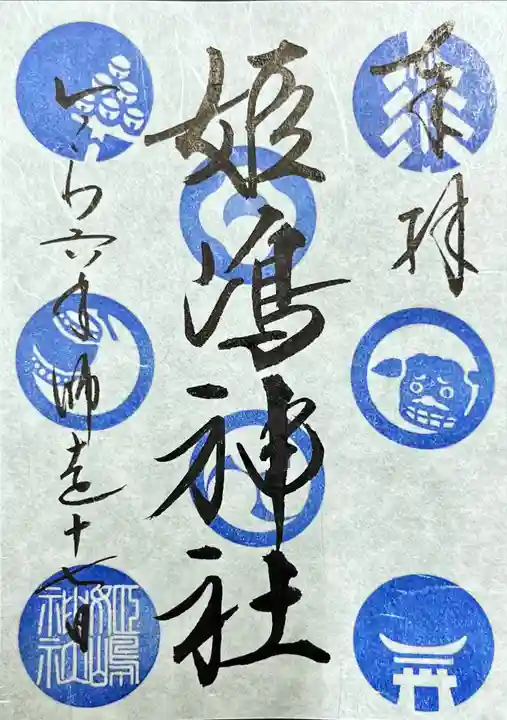 奉拝
姫嶋神社
令わ六年師走十七日
姫嶋
神社